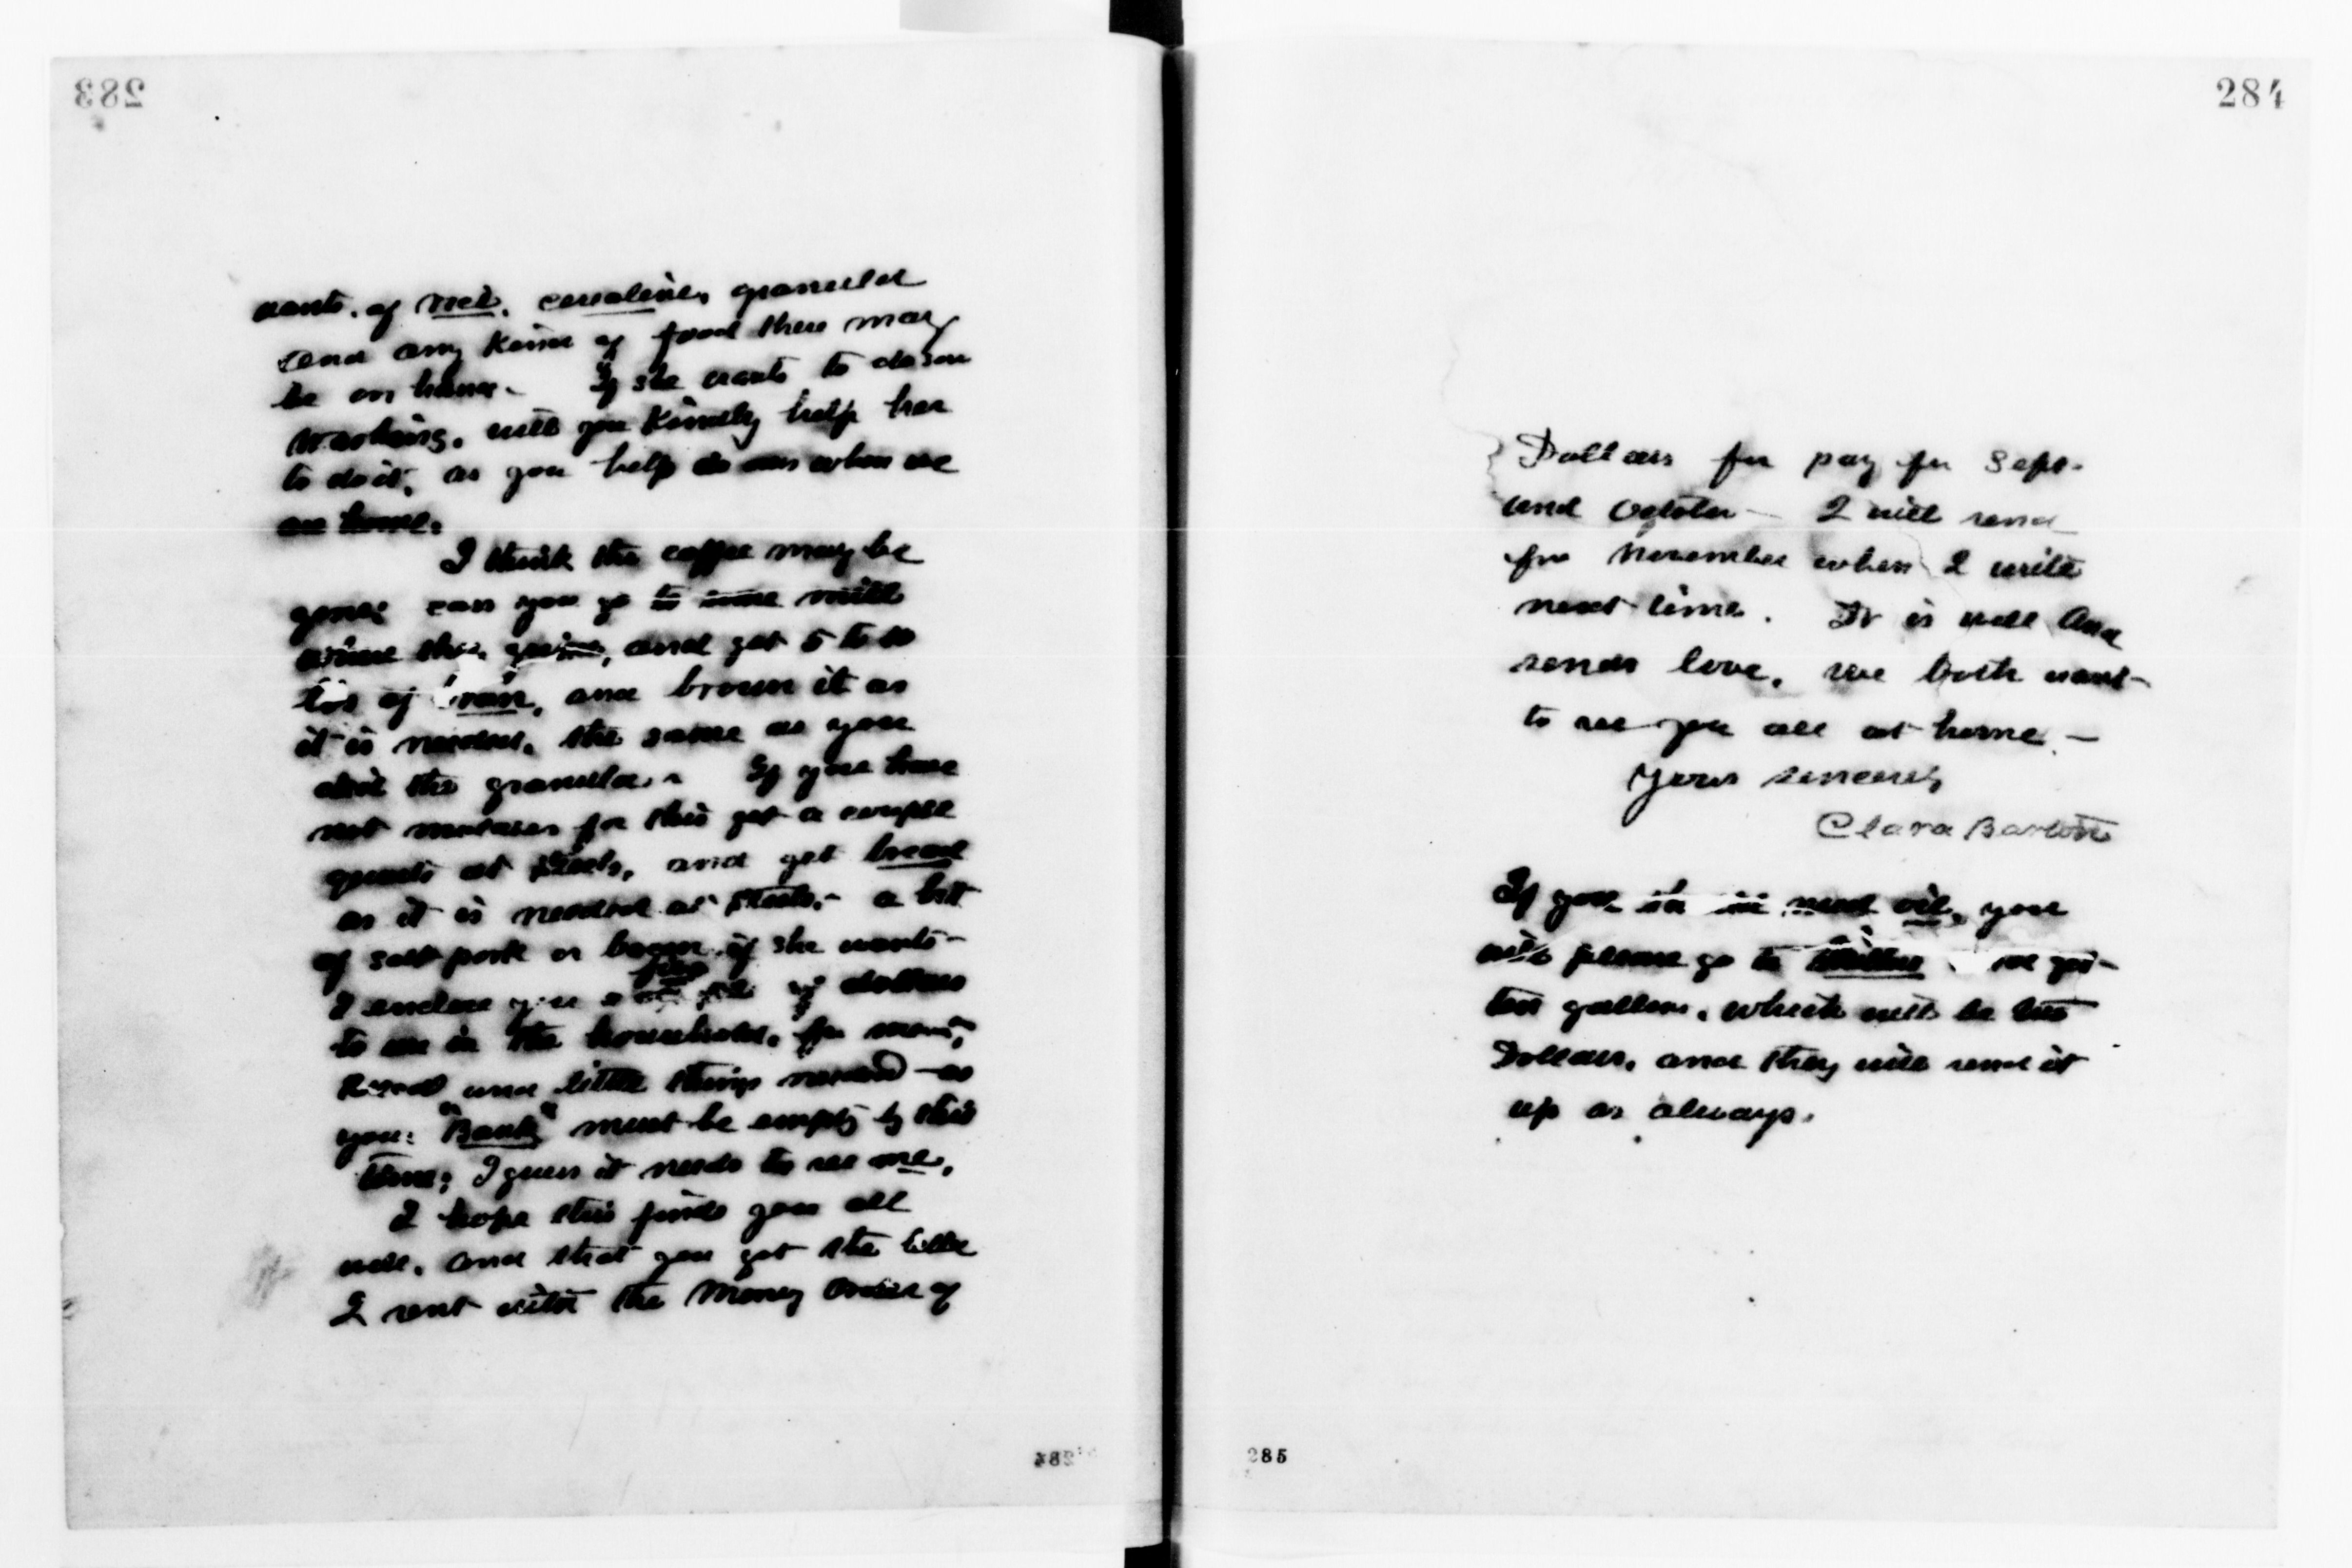 283
wants. of rice. cerealine, granula
and any kind of food there may
be on hand. If she wants to do some
washing. will you kindly help her
to do it, as you help do ours when we
are home.
I think the coffee may be
gone; can you go to some mill
and get 5 to 10
lbs of bran, and brown it as
it is needed, the same as you
did the granula. If you have
not molasses for this get a couple
quarts at and get bread
as it is needed at a bit
of salt pork or bacon if she wants
I enclose you a of dollars
to use in the household, for
and little things needed as
your "Bank" must be empty by this
time; I guess it needs to see me.
I hope this finds you all
well. and that you got the letter
I sent with the Money Order of
284
284
Dollars for pay for Sept.
and October — I will send
for November when I write
next time. Dr is well and
sends love. We both want
to see you all at home. —
Yours sincerely
Clara Barton
If you need oil, you
will please go to get
ten gallons, which will be two
Dollars, and they will send it
up as always.
285